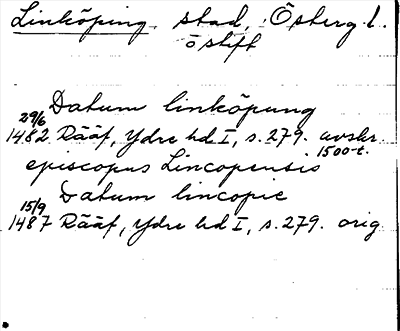 Linköping stad, Österg. l.
östift
Datum linköpung
29/6
1482 Rääf, Ydre hd I, s. 279. avskr.
1500-t.
episcopus Lincopensis
Datum lincopie
15/9
1487 Rääf, Ydre hd I, s. 279. orig.